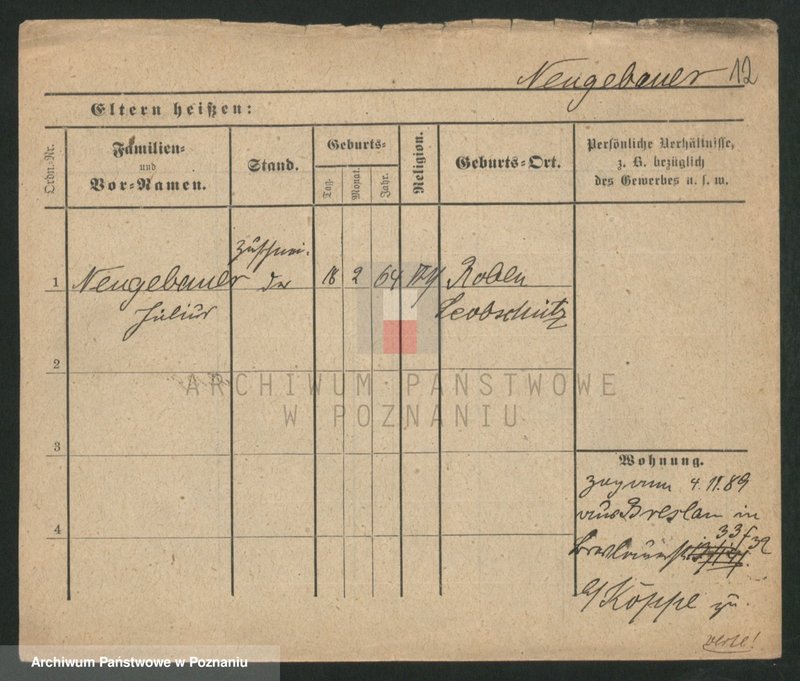 Neugebauer 12
Eltern heißen:
Ordn.-Nr.
Familien-
und
Vor-Namen.
Stand.
Geburts-
Tag.
Monat.
Jahr.
Religion.
Geburts-Ort.
Persönliche Verhältnisse,
z. B. bezüglich
des Gewerbes u. s. w.
1
Neugebauer
Julius
Zuschnei-
der
18
2
64
Roben
Leobschütz
2
3
4
ARCHIWUM PAŃSTWOWE
W POZNANIU
Wohnung.
zog am 4.11.89
aus Breslau in
Breslauerstr.
33 f 32
Köppe zu.
Archiwum Państwowe w Poznaniu